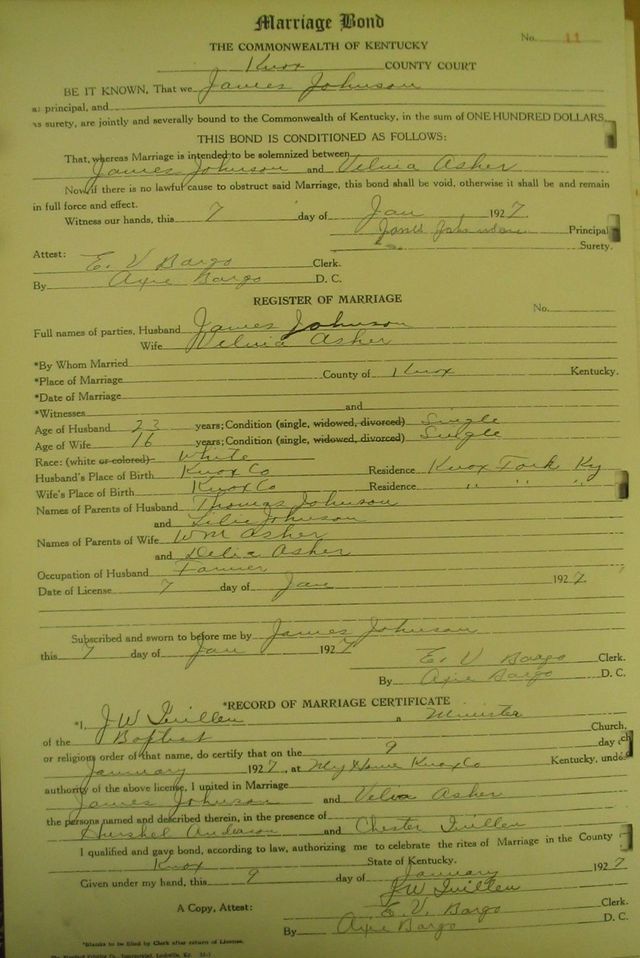 Marriage Bond
No. 11
THE COMMONWEALTH OF KENTUCKY
Knox COUNTY COURT
BE IT KNOWN, That we James Johnson
as principal, and
as surety, are jointly and severally bound to the Commonwealth of Kentucky, in the sum of ONE HUNDRED DOLLARS.
THIS BOND IS CONDITIONED AS FOLLOWS:
That, whereas Marriage is intended to be solemnized between
James Johnson and Velvia Asher
Now, if there is no lawful cause to obstruct said Marriage, this bond shall be void, otherwise it shall be and remain
in full force and effect.
Witness our hands, this 7 day of Jan, 1927.
Johnson Principal
Surety.
Attest: E. V Bargo Clerk.
By Axie Bargo D. C.
REGISTER OF MARRIAGE
No.
Full names of parties, Husband James Johnson
Wife Velvia Asher
*By Whom Married
*Place of Marriage County of Knox Kentucky.
*Date of Marriage
*Witnesses and
Age of Husband 23 years; Condition (single, widowed, divorced) Single
Age of Wife 16 years; Condition (single, widowed, divorced) Single
Race: (white or colored) White
Husband's Place of Birth Knox Co Residence Knox Fork Ky
Wife's Place of Birth Knox Co Residence " " "
Names of Parents of Husband Thomas Johnson
and Lilie Johnson
Names of Parents of Wife Wm Asher
and Delia Asher
Occupation of Husband Farmer
Date of License 7 day of Jan 1927.
Subscribed and sworn to before me by James Johnson
this 7 day of Jan 1927
E. V Bargo Clerk.
By Axie Bargo D. C.
*RECORD OF MARRIAGE CERTIFICATE
*I, J W Guillen a Minister
of the Baptist Church,
or religious order of that name, do certify that on the 9 day of
January 1927, at My Home Knox Co Kentucky, under
authority of the above license, I united in Marriage
James Johnson and Velva Asher
the persons named and described therein, in the presence of
Hurshel Anderson and Chester Guillen
I qualified and gave bond, according to law, authorizing me to celebrate the rites of Marriage in the County
Knox State of Kentucky.
Given under my hand, this 9 day of January 1927
J W Guillen
A Copy, Attest: E. V. Bargo Clerk.
By Axie Bargo D. C.
*Blanks to be filed by Clerk after return of License.